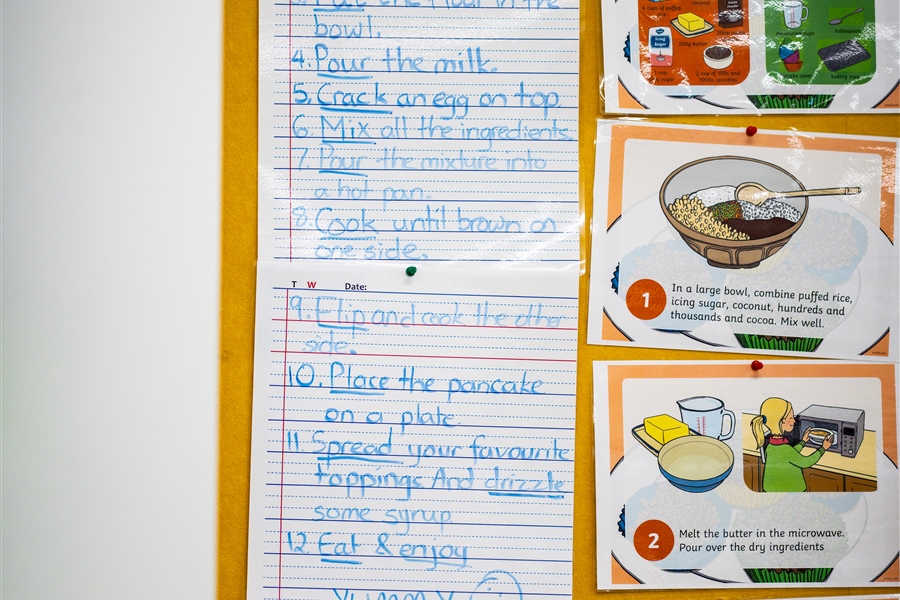 3. Put the flour in the
bowl.
4. Pour the milk.
5. Crack an egg on top.
6. Mix all the ingredients.
7. Pour the mixture into
a hot pan.
8. Cook until brown on
one side.
T W Date:
9. Flip and cook the other
side.
10. Place the pancake
on a plate.
11. Spread your favourite
toppings. And drizzle
some syrup.
12. Eat & enjoy
Yummy
6 cups of puffed
Icing
Sugar
250g butter
1 cup
sugar
1/2 cup of 100s and
1000s sprinkles
tablespoon
baking tray
1
In a large bowl, combine puffed rice,
icing sugar, coconut, hundreds and
thousands and cocoa. Mix well.
2
Melt the butter in the microwave.
Pour over the dry ingredients